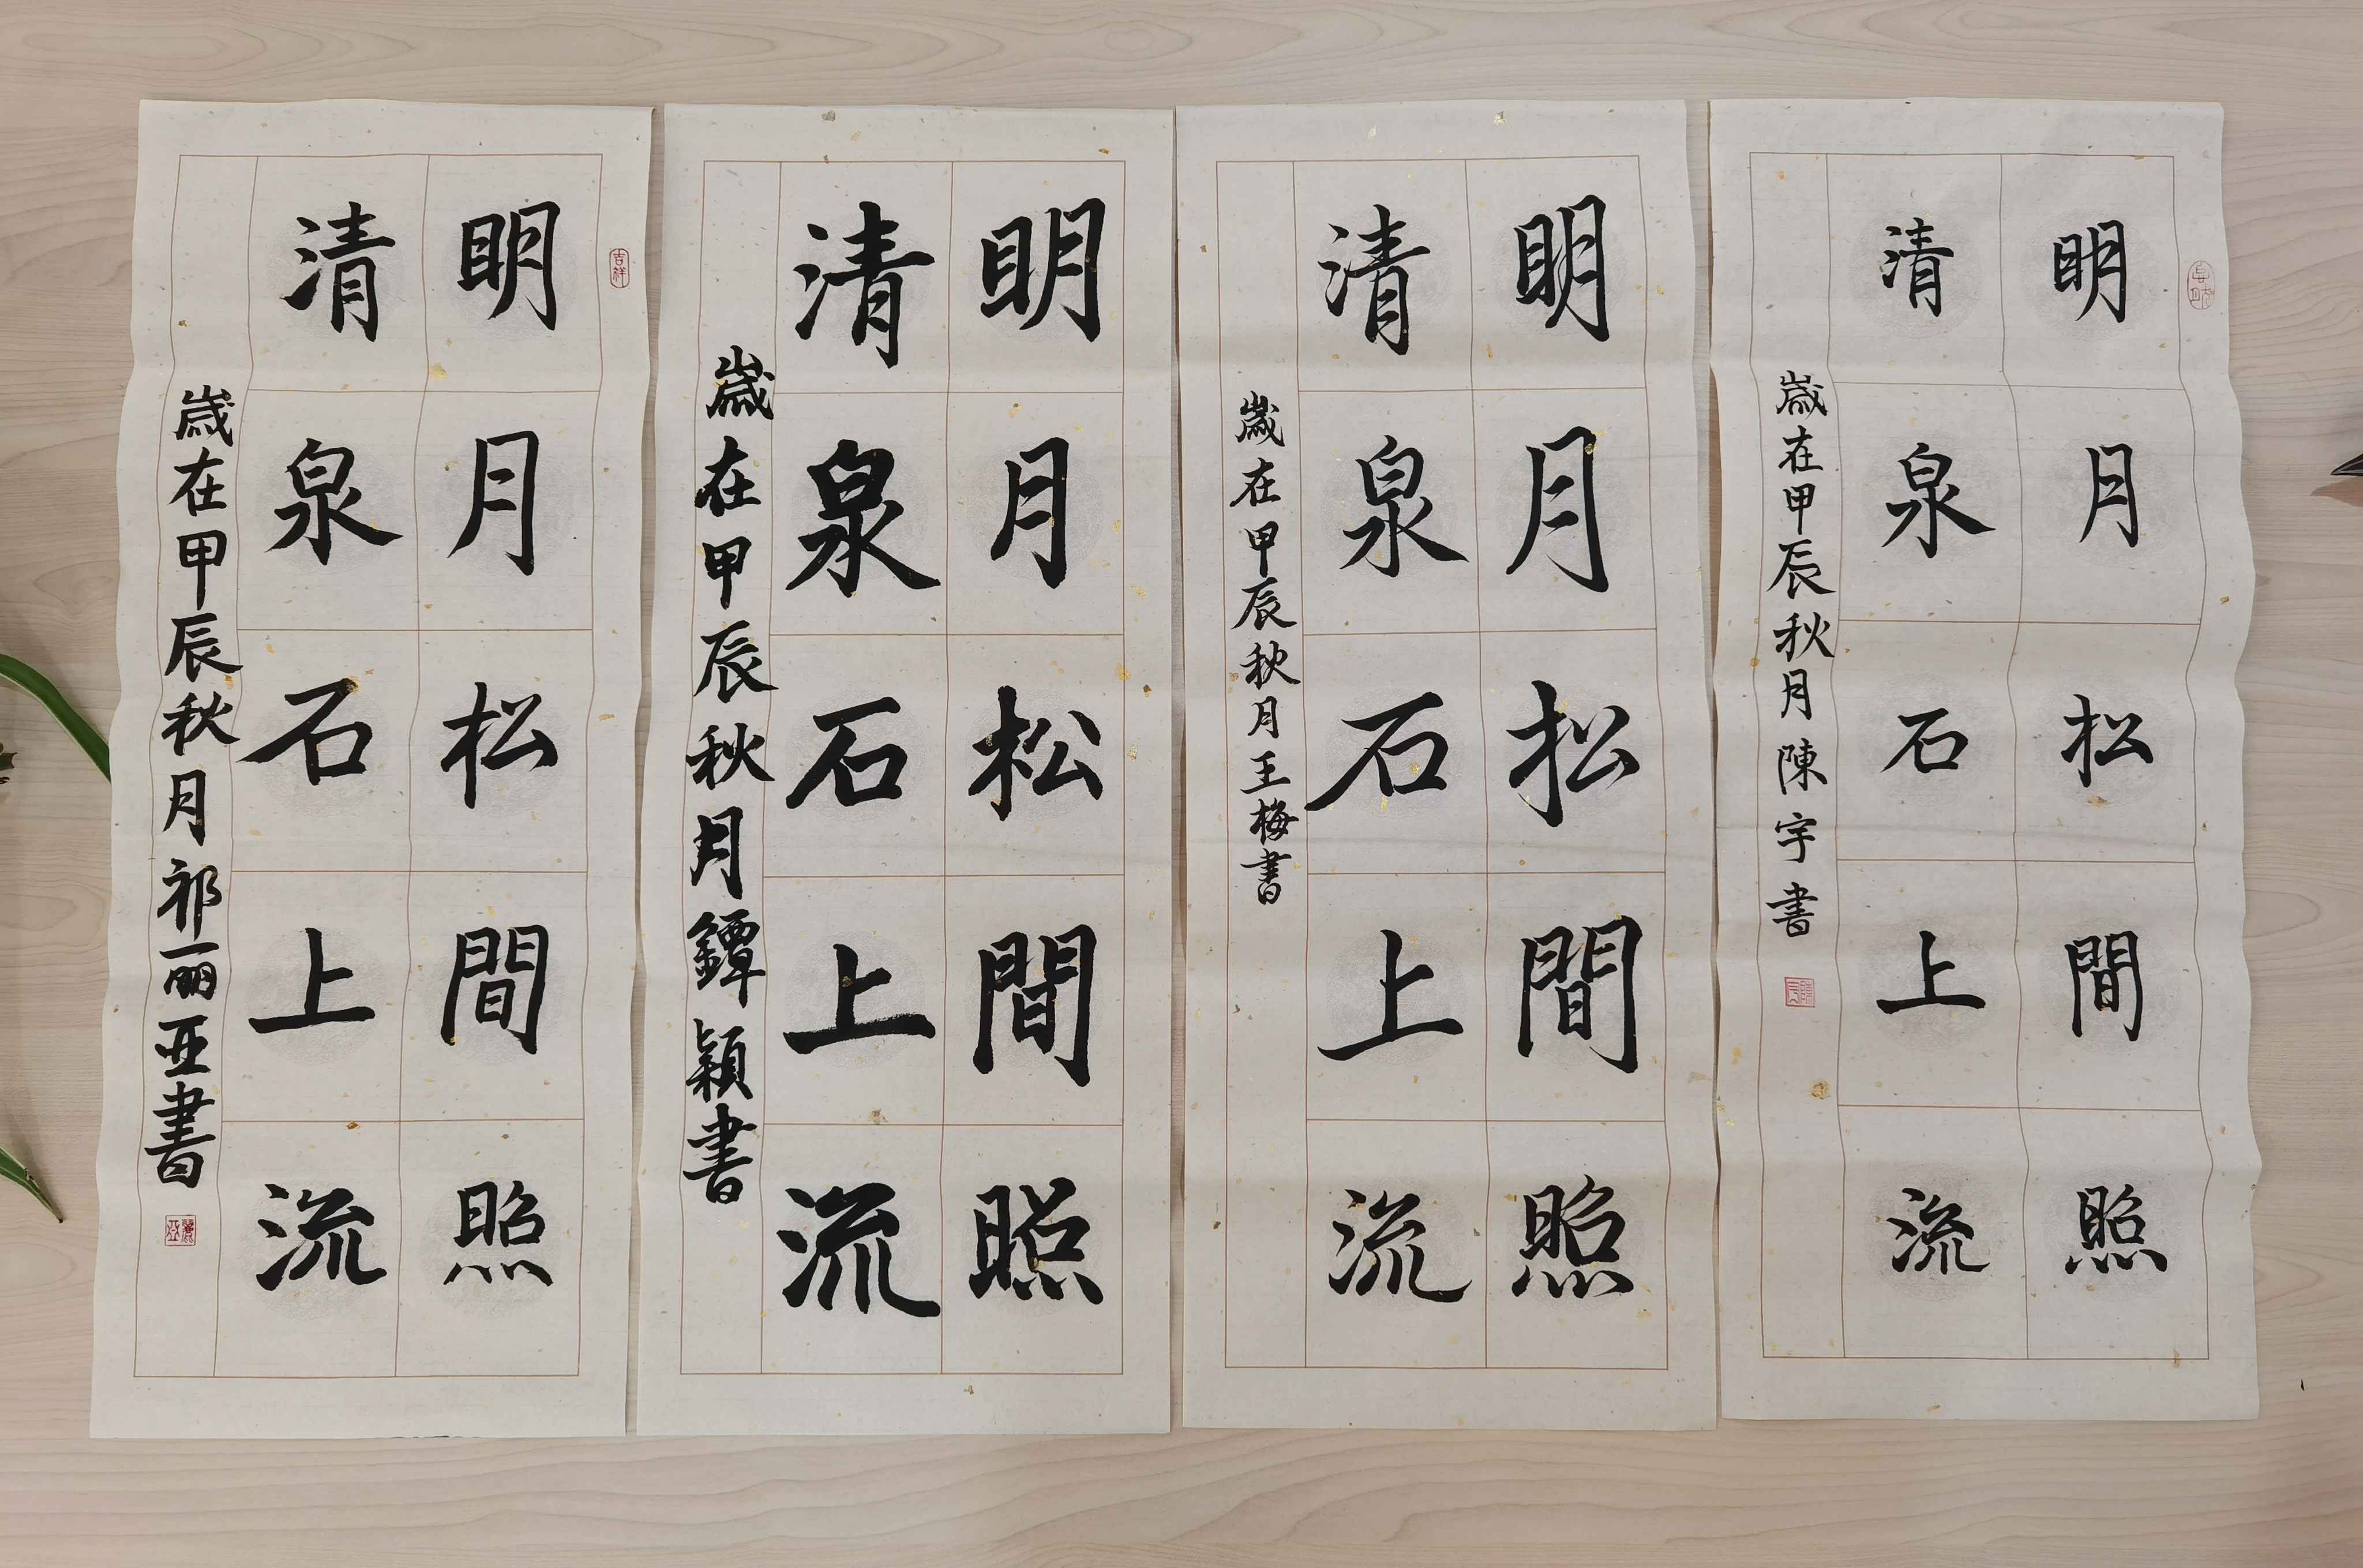 吉祥
明月松間照
清泉石上流
歲在甲辰秋月祁丽亚書
麗亞
明月松間照
清泉石上流
歲在甲辰秋月鐔穎書
明月松間照
清泉石上流
歲在甲辰秋月王梅書
明月松間照
清泉石上流
歲在甲辰秋月陳宇書